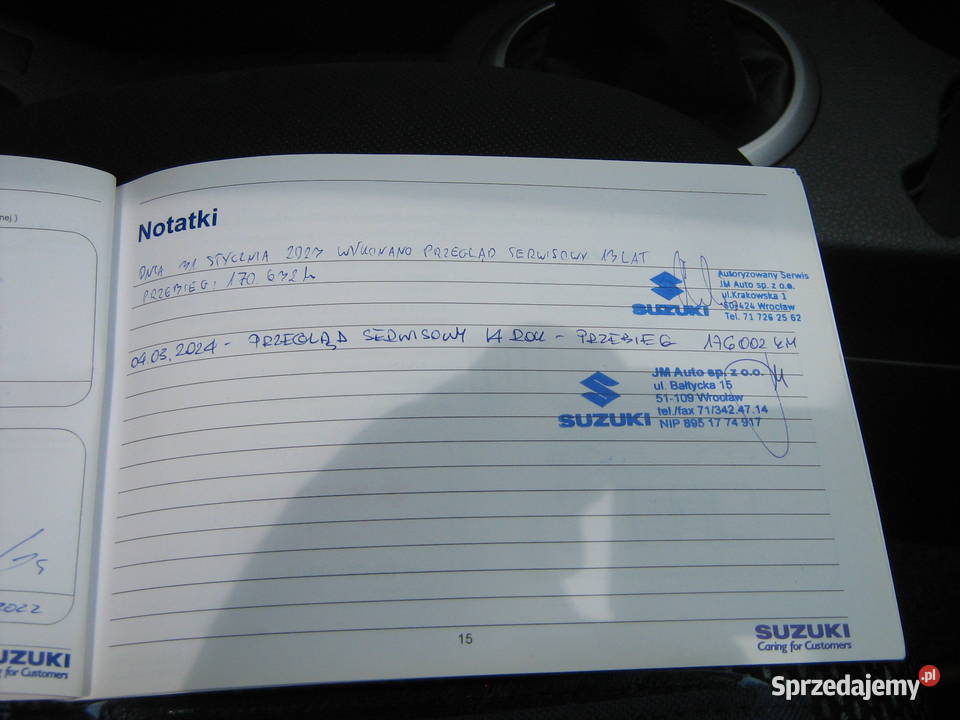 nej.)
Notatki
DNIA 31 STYCZNIA 2023 WYKONANO PRZEGLĄD SERWISOWY 13 LAT
PRZEBIEG: 170.632
SUZUKI
Autoryzowany Serwis
JM Auto sp. z o.o.
ul.Krakowska 1
50-424 Wrocław
Tel. 71 726 25 62
04.03.2024 - PRZEGLĄD SERWISOWY 14 ROK - PRZEBIEG 176002 KM
SUZUKI
JM Auto sp. z o.o.
ul. Bałtycka 15
51-109 Wrocław
tel./fax 71/342.47.14
NIP 895 17 74 917
2022
UZUKI
g for Customers
15
SUZUKI
Caring for Customers
Sprzedajemy.pl